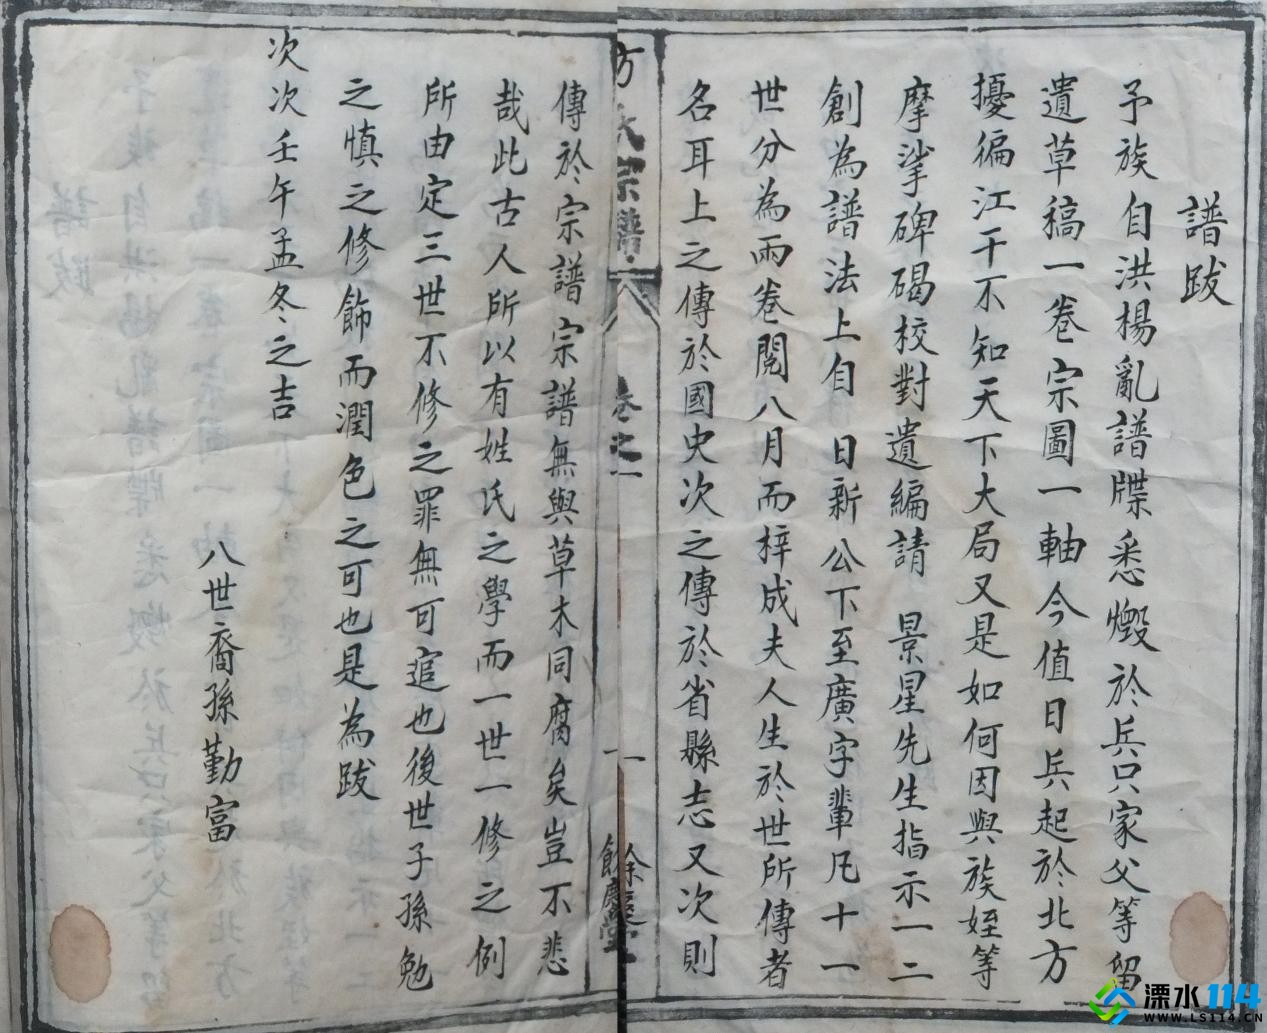 譜跋
予族自洪楊亂譜牒悉燬於兵只家父等留
遺草稿一卷宗圖一軸今值日兵起於北方
擾徧江干不知天下大局又是如何因與族姪等
摩挲碑碣校對遺編請 景星先生指示一二
創為譜法上自 日新公下至廣字輩凡十一
世分為兩卷閱八月而梓成夫人生於世所傳者
名耳上之傳於國史次之傳於省縣志又次則
方氏宗譜
卷之一
一
餘慶堂
傳於宗譜宗譜無與草木同腐矣豈不悲
哉此古人所以有姓氏之學而一世一修之例
所由定三世不修之罪無可逭也後世子孫勉
之慎之修飾而潤色之可也是為跋
次次壬午孟冬之吉
八世裔孫勤富
溧水114
WWW.LS114.CN